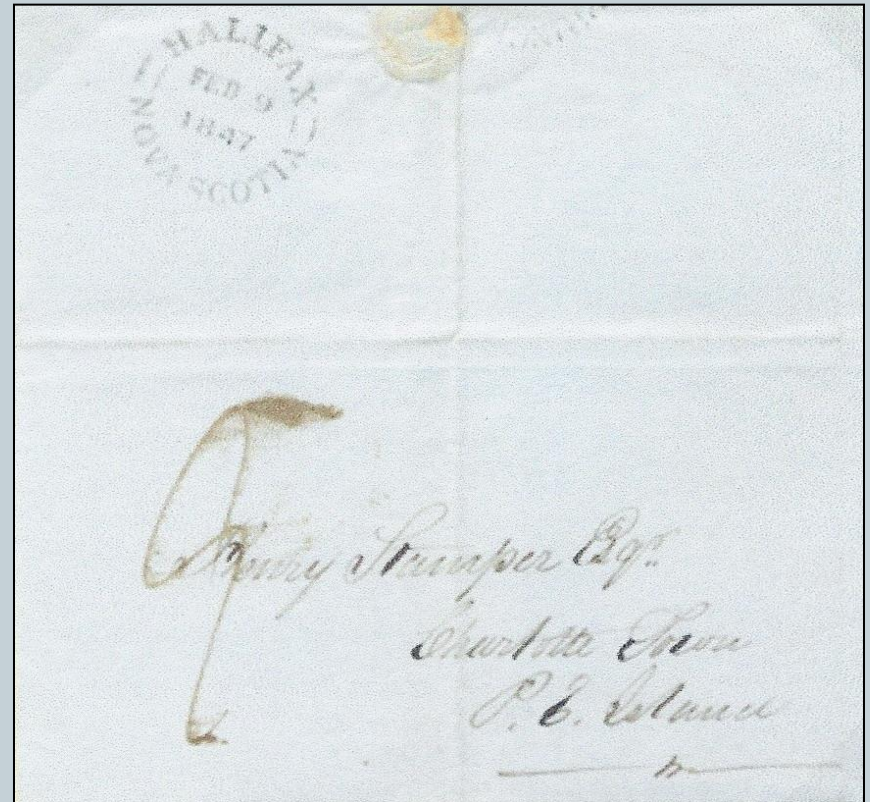 HALIFAX
FEB 9
1847
NOVA SCOTIA
9
Henry Stamper Esqr.
Charlotte Town
P. E. Island